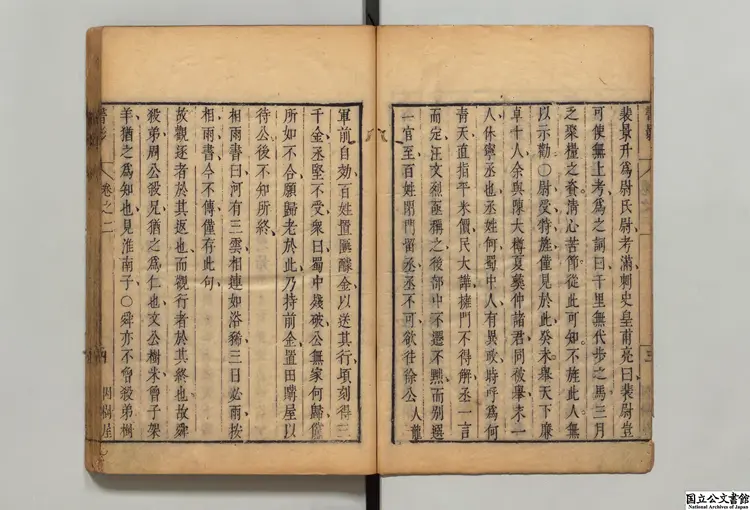 裴景升爲尉氏尉考滿刺史皇甫亮曰裴尉豈
可使無上考爲之詞曰千里無代步之馬三月
之聚糧之資清心苦節從此可知不旌此人無
以示勸○尉受特旌僅見於此癸未舉天下廉
卓十人余與陳大樽夏彝仲諸君同被舉未一
人休寧丞也丞姓何蜀中人有異政時呼爲何
青天直指平米價民大譁擁門不得解丞一言
而定汪文烈亟稱之後部中不遷不黜而别選
一官至百姓閉門留丞丞不可欲往徐公人龍
軍前自効百姓置匭醵金以送其行頃刻得三
千金丞堅不受衆曰蜀中殘破公無家何歸儻
所如不合願歸老於此乃持前金置田凿屋以
待公後不知所終
相雨書曰河有三雲相連如浴豨三日必雨按
相雨書今不傳僅存此句
故觀逐者於其返也而觀行者於其終也故舜
殺弟周公殺兄猶之爲仁也文公樹米曾子架
羊猶之爲知也見淮南子○舜亦不曾殺弟樹
書影
卷之二
因樹屋
三
國立公文書館
National Archives of Japan